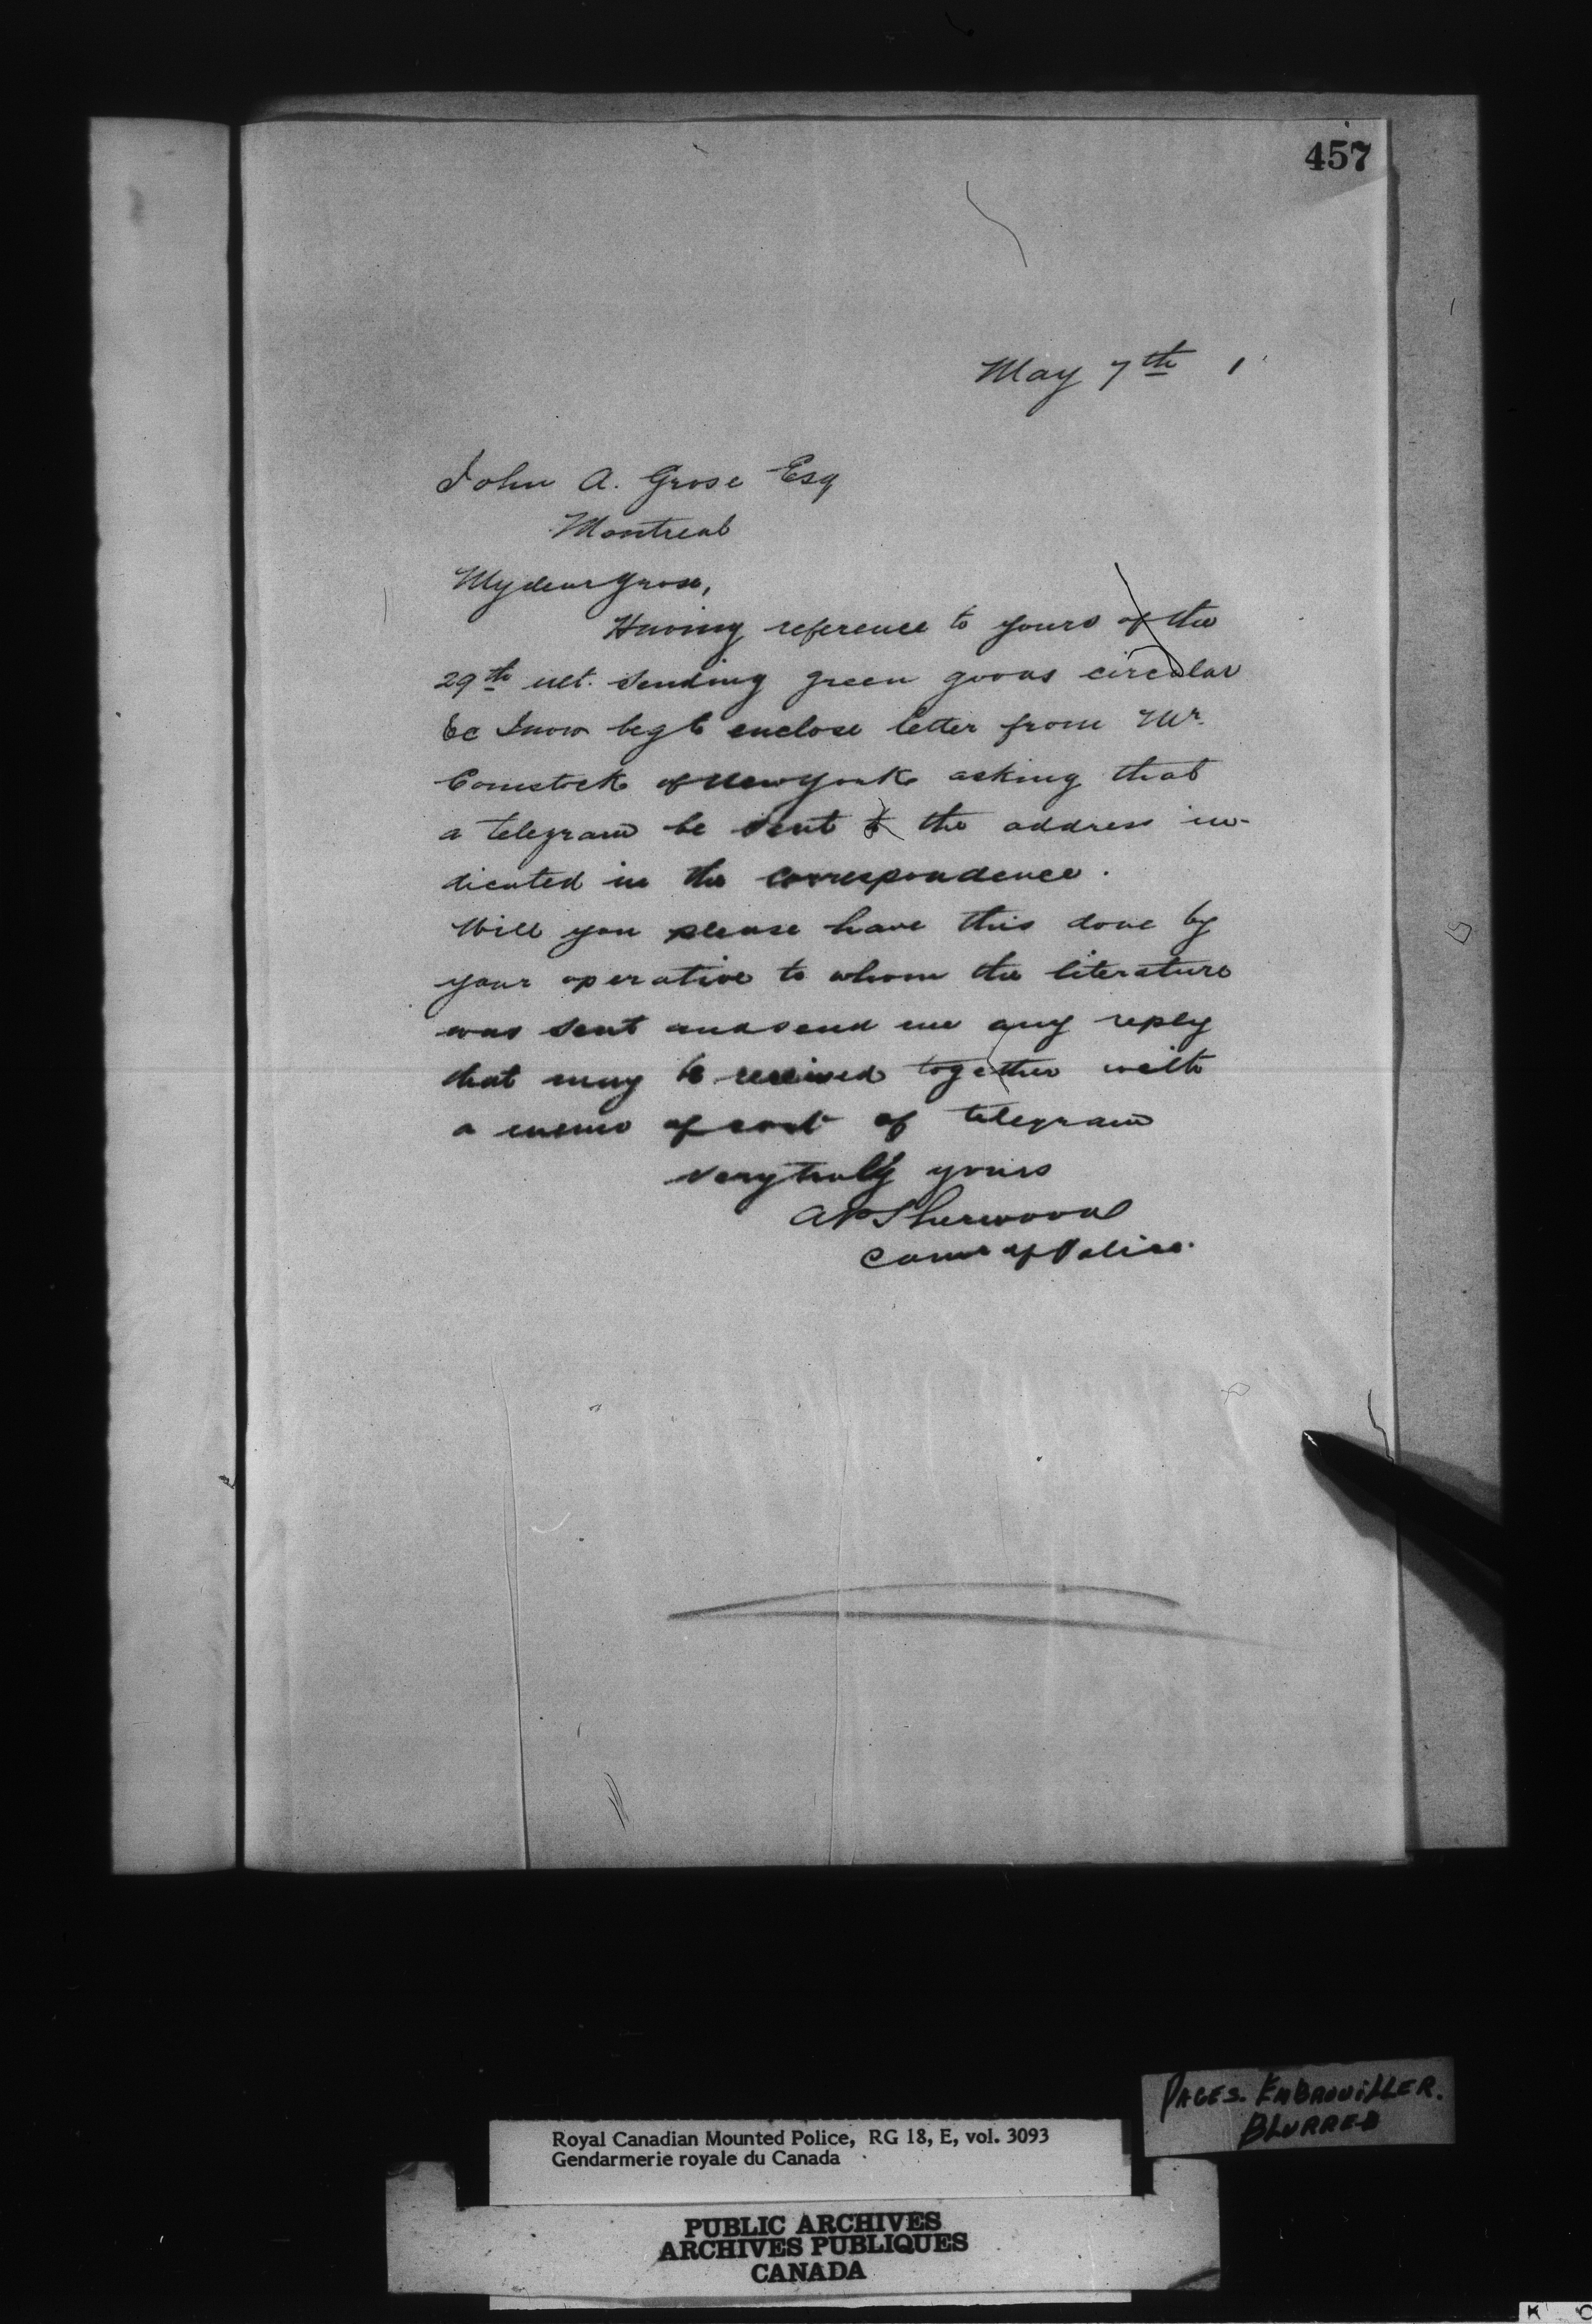 457
May 7th 1
John A. Grose Esq
Montreal
My dear Grose,
Having reference to yours of the
29th ult. sending green goods circular
&c I now beg to enclose letter from Mr.
Comstock of New York asking that
a telegram be sent to the address in-
dicated in the correspondence.
Will you please have this done by
your operative to whom the literature
was sent and send me any reply
that may be received together with
a memo of cost of telegram
Very truly yours
A P Sherwood
Comr of Police.
PAGES. EMBROUILLER.
BLURRED
Royal Canadian Mounted Police, RG 18, E, vol. 3093
Gendarmerie royale du Canada
PUBLIC ARCHIVES
ARCHIVES PUBLIQUES
CANADA